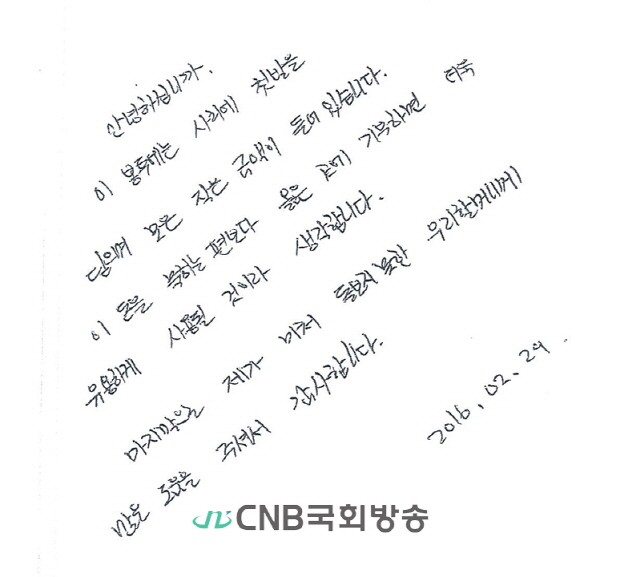 안녕하십니까.
이 봉투에는 사회에 첫발을
딛으며 모은 작은 금액이 들어 있습니다.
이 돈을 편보다 옳은 곳에 기부하면 더욱
유용하게 사용될 것이라 생각합니다.
마지막으로 제가 미처 돌보지 못한 우리할머니께
많은 도움을 주셔서 감사합니다.
2016. 02. 29.
CNB국회방송